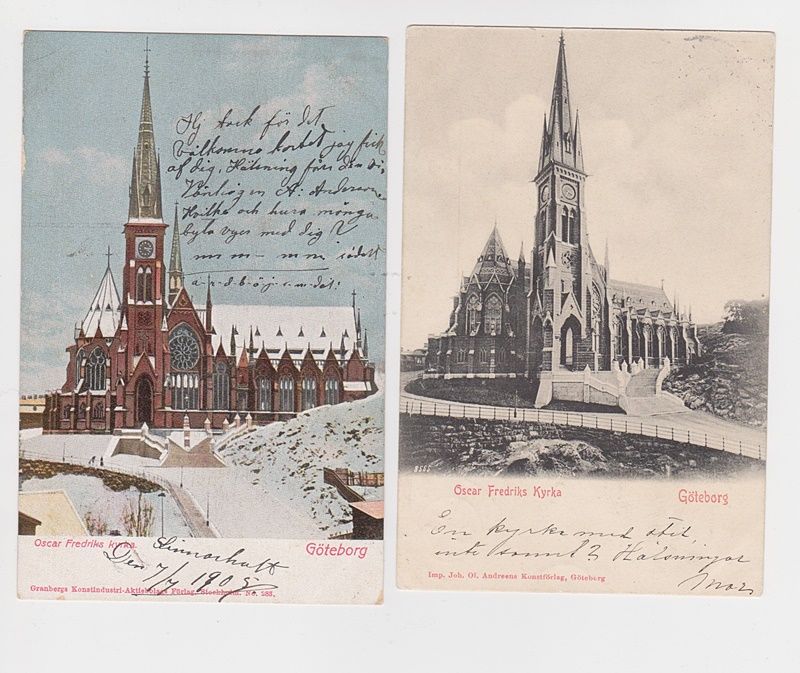 Hj tack för det
välkomna kortet jag fick
af dig, Hälsning från din
Vänligen A: Anderson
Hvilka och hura många
byta vyer med dig?
Oscar Fredriks kyrka.
Göteborg
Den 7/7 1905
Granbergs Konstindustri-Aktiebolags Förlag, Stockholm. No. 285.
8555
Oscar Fredriks Kyrka
Göteborg
En kyrka med
inte sannt? Hälsningar
Imp. Joh. Ol. Andreens Konstförlag, Göteborg